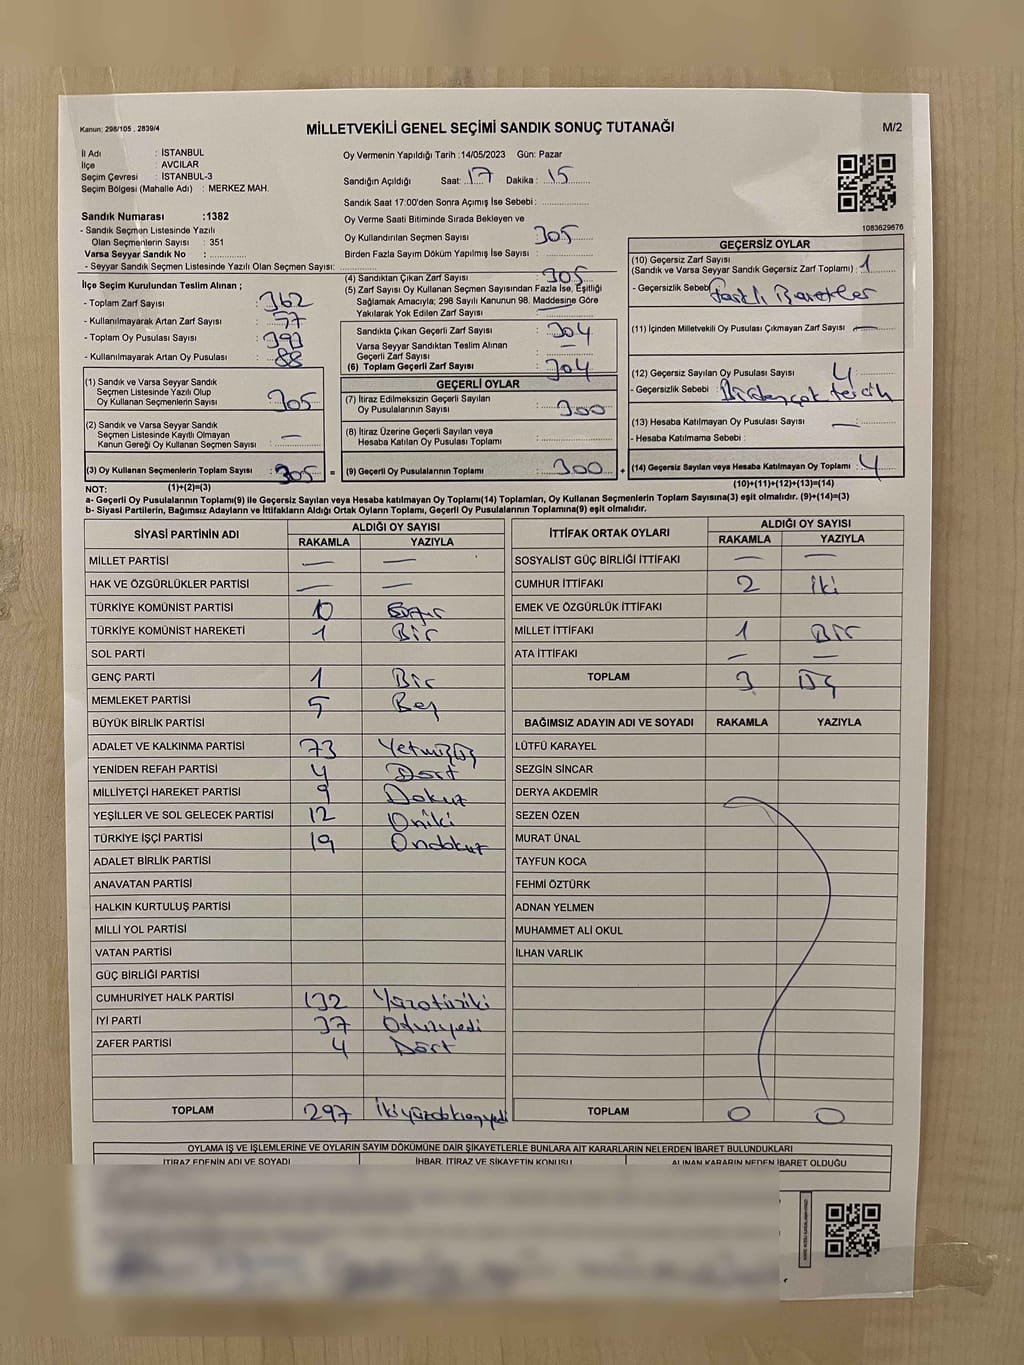 Kanun; 298/105 , 2839/4
MİLLETVEKİLİ GENEL SEÇİMİ SANDIK SONUÇ TUTANAĞI
M/2
İl Adı : İSTANBUL
İlçe : AVCILAR
Seçim Çevresi : İSTANBUL-3
Seçim Bölgesi (Mahalle Adı) : MERKEZ MAH.
Sandık Numarası :1382
- Sandık Seçmen Listesinde Yazılı
Olan Seçmenlerin Sayısı : 351
Varsa Seyyar Sandık No :
- Seyyar Sandık Seçmen Listesinde Yazılı Olan Seçmen Sayısı:
İlçe Seçim Kurulundan Teslim Alınan ;
- Toplam Zarf Sayısı : 362
- Kullanılmayarak Artan Zarf Sayısı : 57
- Toplam Oy Pusulası Sayısı : 393
- Kullanılmayarak Artan Oy Pusulası : 88
(1) Sandık ve Varsa Seyyar Sandık
Seçmen Listesinde Yazılı Olup
Oy Kullanan Seçmenlerin Sayısı : 305
(2) Sandık ve Varsa Seyyar Sandık
Seçmen Listesinde Kayıtlı Olmayan
Kanun Gereği Oy Kullanan Seçmen Sayısı : —
(3) Oy Kullanan Seçmenlerin Toplam Sayısı : 305 =
(1)+(2)=(3)
Oy Vermenin Yapıldığı Tarih :14/05/2023 Gün: Pazar
Sandığın Açıldığı Saat: 17 Dakika : 15
Sandık Saat 17:00'den Sonra Açımış İse Sebebi :
Oy Verme Saati Bitiminde Sırada Bekleyen ve
Oy Kullandırılan Seçmen Sayısı : 305
Birden Fazla Sayım Döküm Yapılmış İse Sayısı :
(4) Sandıktan Çıkan Zarf Sayısı : 305
(5) Zarf Sayısı Oy Kullanan Seçmen Sayısından Fazla İse, Eşitliği
Sağlamak Amacıyla; 298 Sayılı Kanunun 98. Maddesine Göre
Yakılarak Yok Edilen Zarf Sayısı :
Sandıkta Çıkan Geçerli Zarf Sayısı : 304
Varsa Seyyar Sandıktan Teslim Alınan
Geçerli Zarf Sayısı : —
(6) Toplam Geçerli Zarf Sayısı : 304
GEÇERLİ OYLAR
(7) İtiraz Edilmeksizin Geçerli Sayılan
Oy Pusulalarının Sayısı : 300
(8) İtiraz Üzerine Geçerli Sayılan veya
Hesaba Katılan Oy Pusulası Toplamı :
(9) Geçerli Oy Pusulalarının Toplamı : 300 +
1083629676
GEÇERSİZ OYLAR
(10) Geçersiz Zarf Sayısı
(Sandık ve Varsa Seyyar Sandık Geçersiz Zarf Toplamı) : 1
- Geçersizlik Sebebi
(11) İçinden Milletvekili Oy Pusulası Çıkmayan Zarf Sayısı : —
(12) Geçersiz Sayılan Oy Pusulası Sayısı : 4
- Geçersizlik Sebebi : Birden çok tercih
(13) Hesaba Katılmayan Oy Pusulası Sayısı : —
- Hesaba Katılmama Sebebi :
(14) Geçersiz Sayılan veya Hesaba Katılmayan Oy Toplamı : 4
(10)+(11)+(12)+(13)=(14)
NOT:
a- Geçerli Oy Pusulalarının Toplamı(9) ile Geçersiz Sayılan veya Hesaba katılmayan Oy Toplamı(14) Toplamları, Oy Kullanan Seçmenlerin Toplam Sayısına(3) eşit olmalıdır. (9)+(14)=(3)
b- Siyasi Partilerin, Bağımsız Adayların ve İttifakların Aldığı Ortak Oyların Toplamı, Geçerli Oy Pusulalarının Toplamına(9) eşit olmalıdır.
SİYASİ PARTİNİN ADI ALDIĞI OY SAYISI
RAKAMLA YAZIYLA
MİLLET PARTİSİ — —
HAK VE ÖZGÜRLÜKLER PARTİSİ — —
TÜRKİYE KOMÜNİST PARTİSİ 0
TÜRKİYE KOMÜNİST HAREKETİ 1 Bir
SOL PARTİ
GENÇ PARTİ 1 Bir
MEMLEKET PARTİSİ 5 Beş
BÜYÜK BİRLİK PARTİSİ
ADALET VE KALKINMA PARTİSİ 73 Yetmişüç
YENİDEN REFAH PARTİSİ 4 Dört
MİLLİYETÇİ HAREKET PARTİSİ 9 Dokuz
YEŞİLLER VE SOL GELECEK PARTİSİ 12 Oniki
TÜRKİYE İŞÇİ PARTİSİ 19 Ondokuz
ADALET BİRLİK PARTİSİ
ANAVATAN PARTİSİ
HALKIN KURTULUŞ PARTİSİ
MİLLİ YOL PARTİSİ
VATAN PARTİSİ
GÜÇ BİRLİĞİ PARTİSİ
CUMHURİYET HALK PARTİSİ 132 Yüzotuziki
İYİ PARTİ 37 Otuzyedi
ZAFER PARTİSİ 4 Dört
TOPLAM 297 İkiyüzdoksanyedi
İTTİFAK ORTAK OYLARI ALDIĞI OY SAYISI
RAKAMLA YAZIYLA
SOSYALİST GÜÇ BİRLİĞİ İTTİFAKI — —
CUMHUR İTTİFAKI 2 İki
EMEK VE ÖZGÜRLÜK İTTİFAKI
MİLLET İTTİFAKI 1 Bir
ATA İTTİFAKI — —
TOPLAM 3 Üç
BAĞIMSIZ ADAYIN ADI VE SOYADI RAKAMLA YAZIYLA
LÜTFÜ KARAYEL
SEZGİN SİNCAR
DERYA AKDEMİR
SEZEN ÖZEN
MURAT ÜNAL
TAYFUN KOCA
FEHMİ ÖZTÜRK
ADNAN YELMEN
MUHAMMET ALİ OKUL
İLHAN VARLIK
TOPLAM 0 0
OYLAMA İŞ VE İŞLEMLERİNE VE OYLARIN SAYIM DÖKÜMÜNE DAİR ŞİKAYETLERLE BUNLARA AİT KARARLARIN NELERDEN İBARET BULUNDUKLARI
İTİRAZ EDENİN ADI VE SOYADI İHBAR, İTİRAZ VE ŞİKAYETİN KONUSU ALINAN KARARIN NEDEN İBARET OLDUĞU